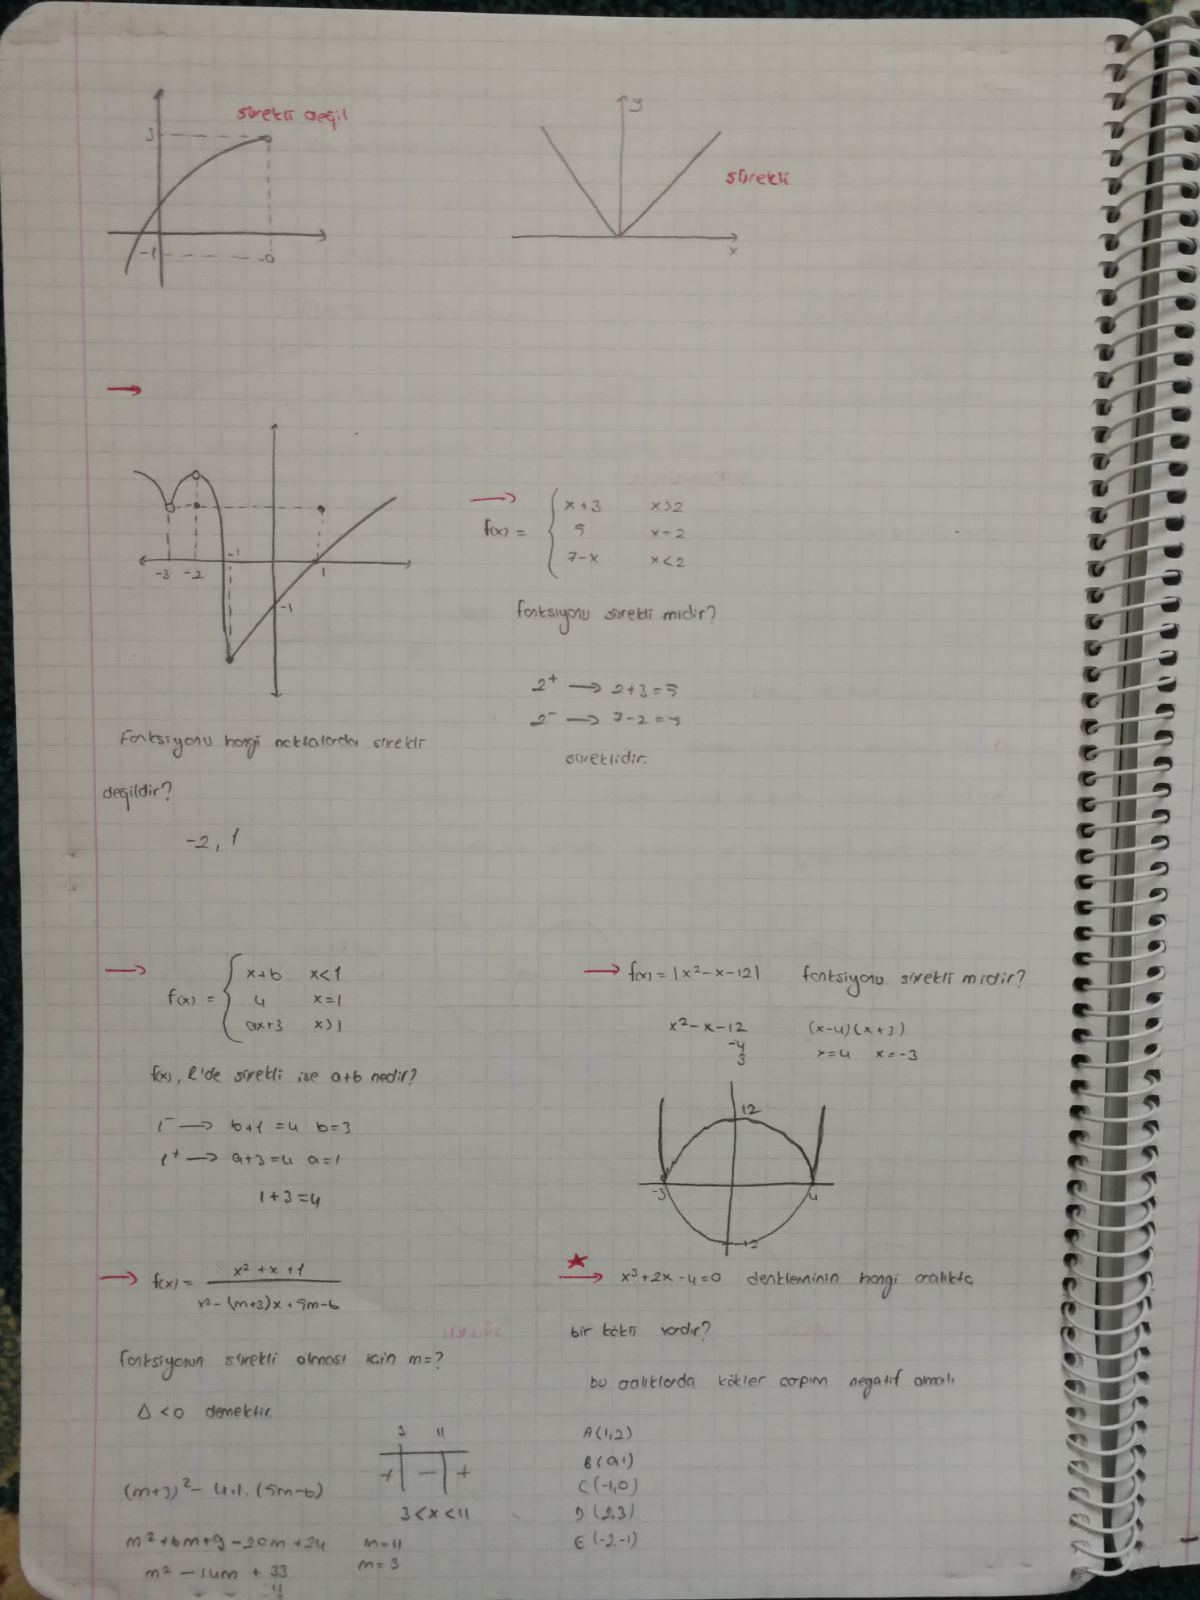 sürekli değil
3
-1
y
sürekli
x
-3 -2 -1 1
-1
Fonksiyonu hangi noktalarda sürekli
değildir?
-2, 1
f(x) = { x+3 x>2
5 x=2
7-x x<2
fonksiyonu sürekli midir?
2⁺ → 2+3=5
2⁻ → 7-2=5
süreklidir.
f(x) = { x+b x<1
4 x=1
ax+3 x>1
f(x), R'de sürekli ise a+b nedir?
1⁻ → b+1=4 b=3
1⁺ → a+3=4 a=1
1+3=4
→ f(x) = |x²-x-12| fonksiyonu sürekli midir?
x²-x-12 (x-4)(x+3)
-4
3 x=4 x=-3
12
-3 4
→ f(x) = x²+x+1 / x²-(m+3)x+5m-6
fonksiyonun sürekli olması için m=?
Δ<0 demektir.
3 11
+ - +
(m+3)²-4.1.(5m-6)
3<x<11
m²+6m+9-20m+24 m=11
m²-14m+33 m=3
★
→ x³+2x-4=0 denkleminin hangi aralıkta
bir kökü vardır?
bu aralıklarda kökler çarpım negatif olmalı
A(1,2)
B(0,1)
C(-1,0)
D(2,3)
E(-2,-1)